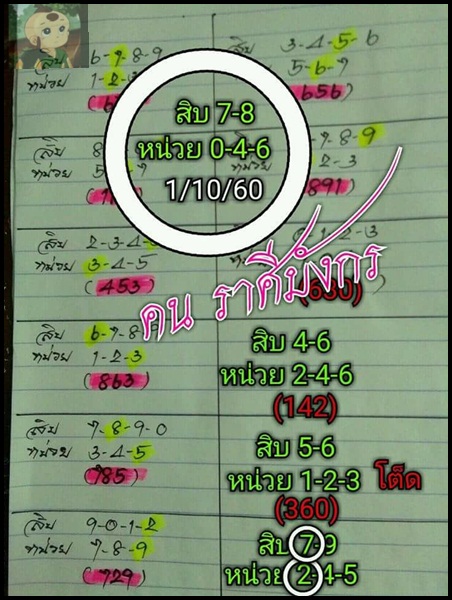 สิบ 6-7-8-9
หน่วย 1-2-3
สิบ 3-4-5-6
5-6-7
(656)
สิบ 7-8
หน่วย 0-4-6
1/10/60
สิบ 8
หน่วย 5
7-8-9
2-3
891)
สิบ 2-3-4-
หน่วย 3-4-5
(453)
1-2-3
(630)
คน ราศีมังกร
สิบ 6-7-8
หน่วย 1-2-3
(863)
สิบ 4-6
หน่วย 2-4-6
(142)
สิบ 7-8-9-0
หน่วย 3-4-5
(785)
สิบ 5-6
หน่วย 1-2-3 โต็ด
(360)
สิบ 9-0-1-2
หน่วย 7-8-9
(729)
สิบ 7-9
หน่วย 2-4-5